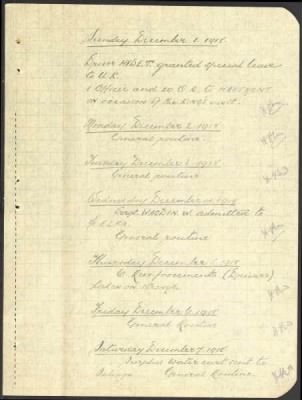 Sunday December 1. 1918.
Driver granted special leave
to U.K.
1 Officer and 20 O.R. to
on occasion of the KING'S visit.
Monday December 2. 1918
General routine.
Tuesday December 3. 1918
General routine
Wednesday December 4. 1918
admitted to
General routine
Thursday December 5. 1918
6 Reinforcements (Drivers)
taken on strength
Friday December 6. 1918
General Routine
Saturday December 7. 1918
Surplus water cart sent to
General Routine.